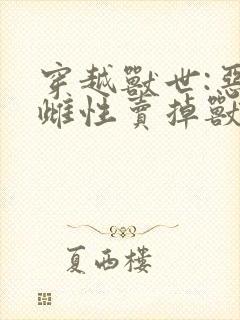 穿越獸世:惡
雌性賣掉獸
夏西樓